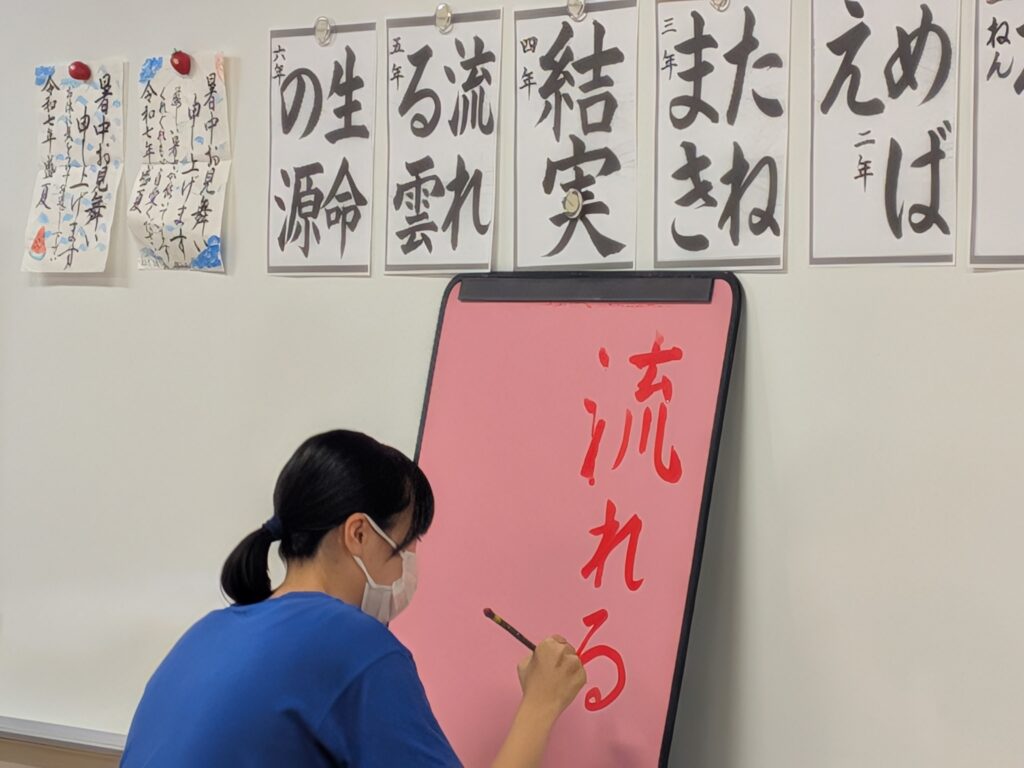 ねん
めば
え
二年
たね
まき
三年
結実
四年
流れ
る雲
五年
生命
の源
六年
暑中お見舞い
申し上げます
令和七年盛夏
暑中お見舞い
申し上げます
令和七年盛夏
流れる